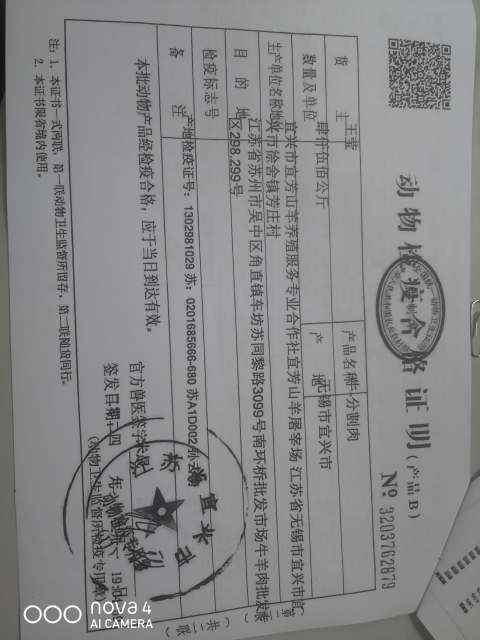 动物检疫合格证明（产品B）
№ 3203762879
货主
王莹
产品名称
牛分割肉
数量及单位
肆仟伍佰公斤
产地
无锡市宜兴市
生产单位名称地址
宜兴市宜芳山羊养殖服务专业合作社宜芳山羊屠宰场 江苏省无锡市宜兴市
业市徐舍镇芳庄村
目的地
江苏省苏州市吴中区甪直镇车坊苏同黎路3099号南环桥批发市场牛羊肉批发
区298.299号
检疫标志号
备注
产地检疫证号：1302981029 苏：0201685666-680 苏A1D002
本批动物产品经检疫合格，应于当日到达有效。
官方兽医签字
签发日期
年
（动物卫生监督所检疫专用章）
宜兴市
注：1．本证书一式两联，第一联动物卫生监督所留存，第二联随货同行。
2．本证书限省境内使用。
共二联
nova 4
AI CAMERA